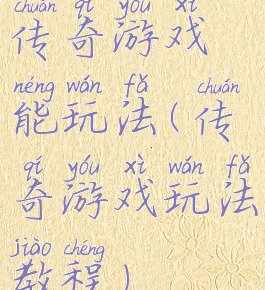 chuán qí yóu xì
传奇游戏
néng wán fǎ chuán
能玩法(传
qí yóu xì wán fǎ
奇游戏玩法
jiào chéng
教程)